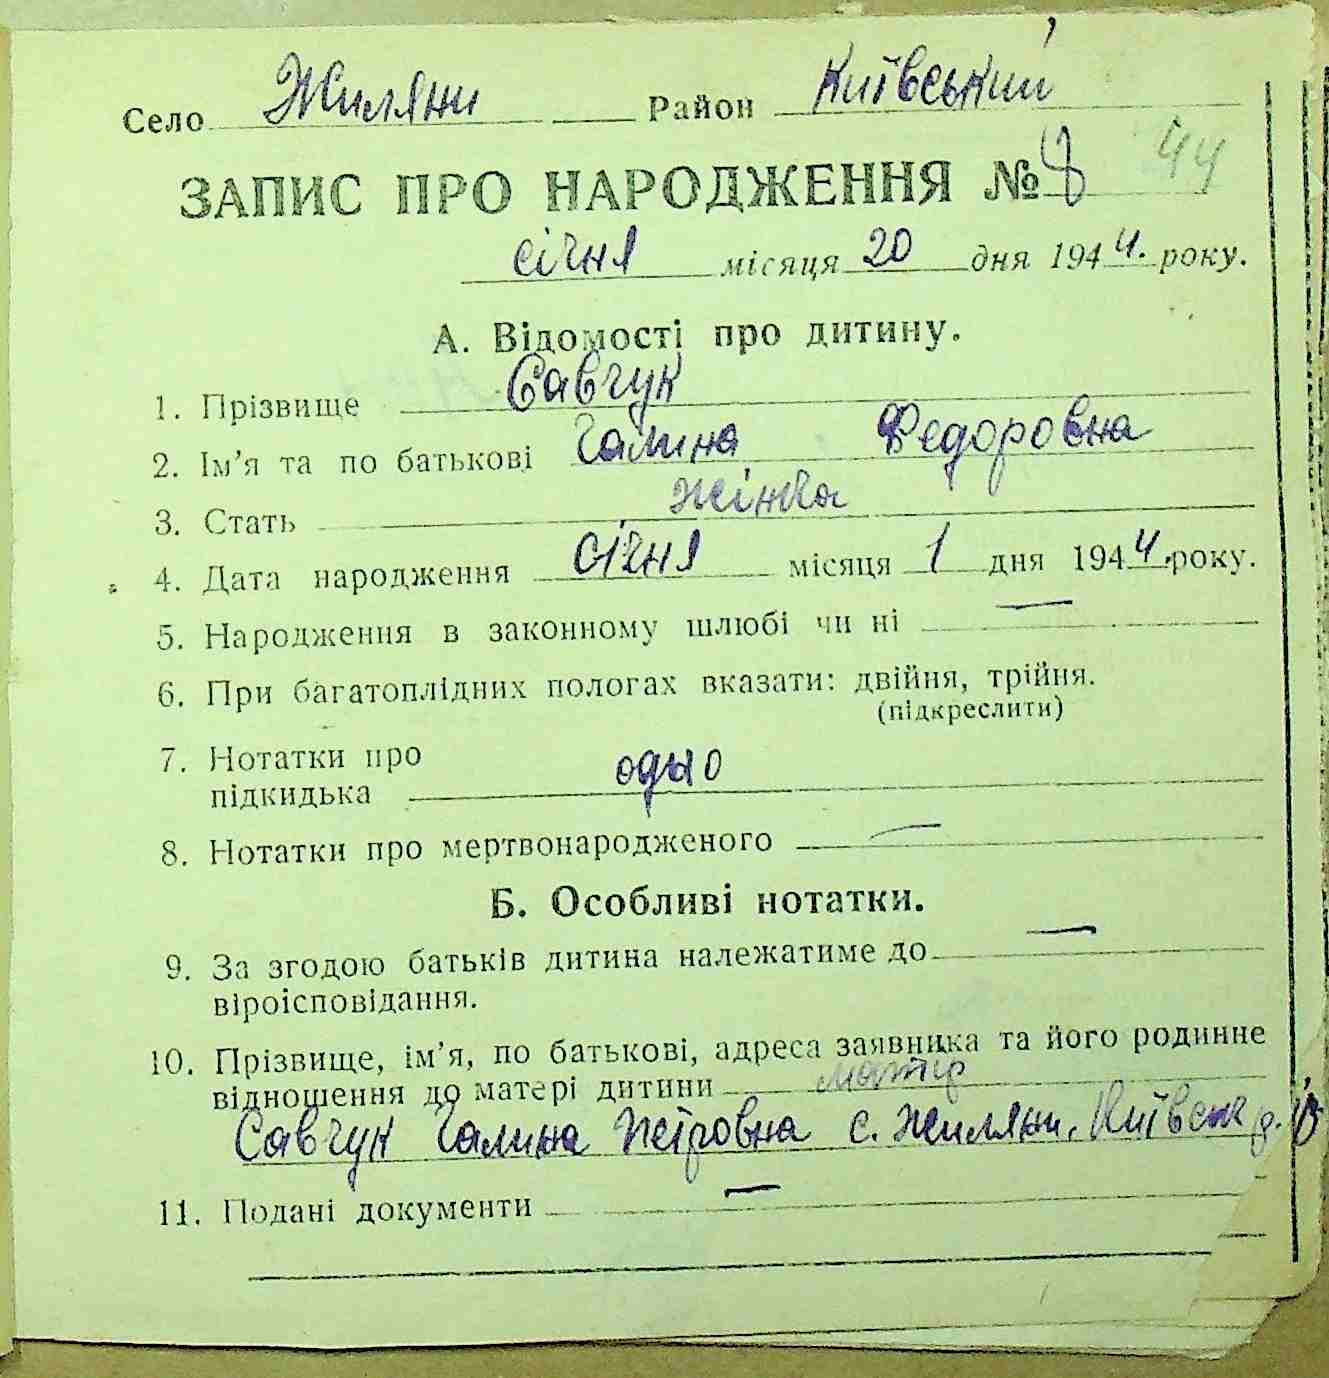 Село Жиляни Район Київський
44
ЗАПИС ПРО НАРОДЖЕННЯ № 8
січня місяця 20 дня 1944. року.
А. Відомості про дитину.
1. Прізвище Савчук
2. Ім'я та по батькові Галина Федоровна
3. Стать жінка
4. Дата народження січня місяця 1 дня 1944. року.
5. Народження в законному шлюбі чи ні —
6. При багатоплідних пологах вказати: двійня, трійня.
(підкреслити)
7. Нотатки про
підкидька одно
8. Нотатки про мертвонародженого —
Б. Особливі нотатки.
9. За згодою батьків дитина належатиме до —
віроісповідання.
10. Прізвище, ім'я, по батькові, адреса заявника та його родинне
відношення до матері дитини матір
Савчук Галина Петровна с. Жиляни, Київськ
11. Подані документи —